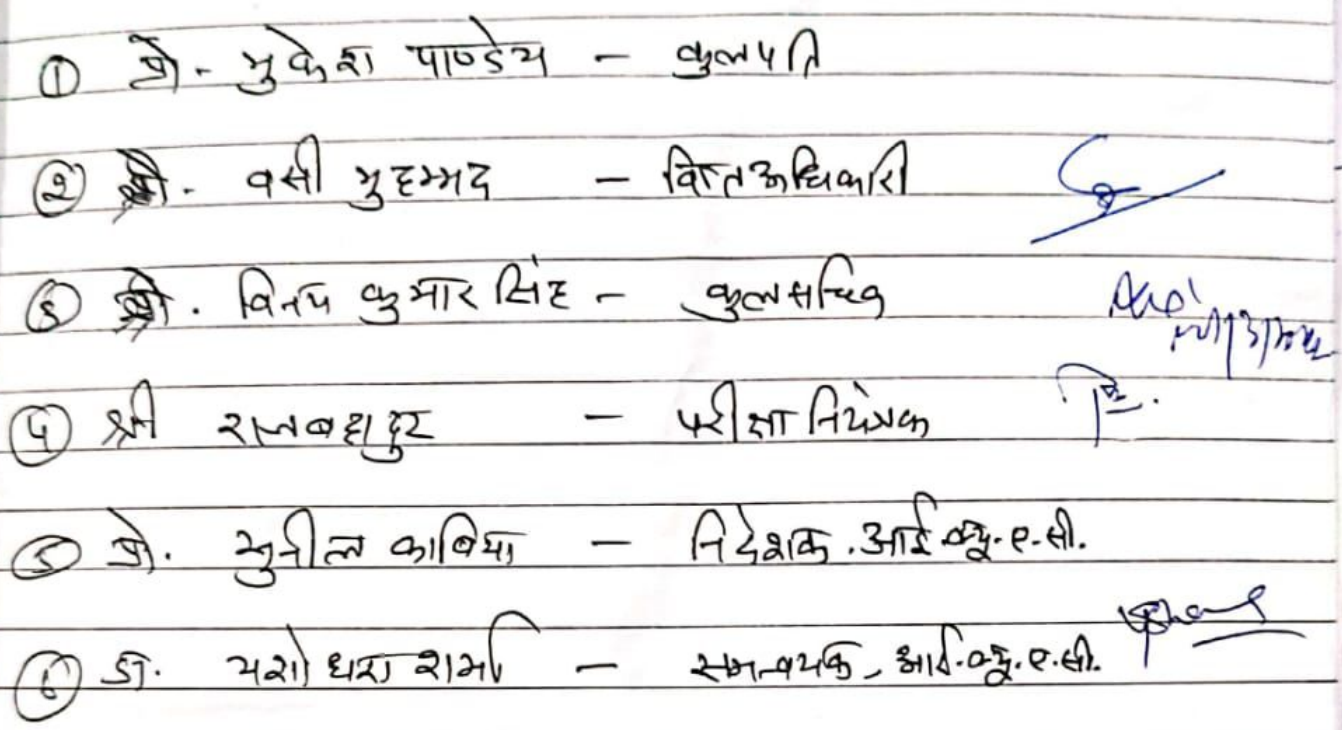 ① प्रो. मुकेश पाण्डेय – कुलपति
② श्री. वसी मुहम्मद – वित्त अधिकारी
③ श्री. विनय कुमार सिंह – कुलसचिव
④ श्री राजबहादुर – परीक्षा नियंत्रक
⑤ प्रो. सुनील काबिया – निदेशक. आई.क्यू.ए.सी.
⑥ डा. यशोधरा शर्मा – समन्वयक, आई.क्यू.ए.सी.